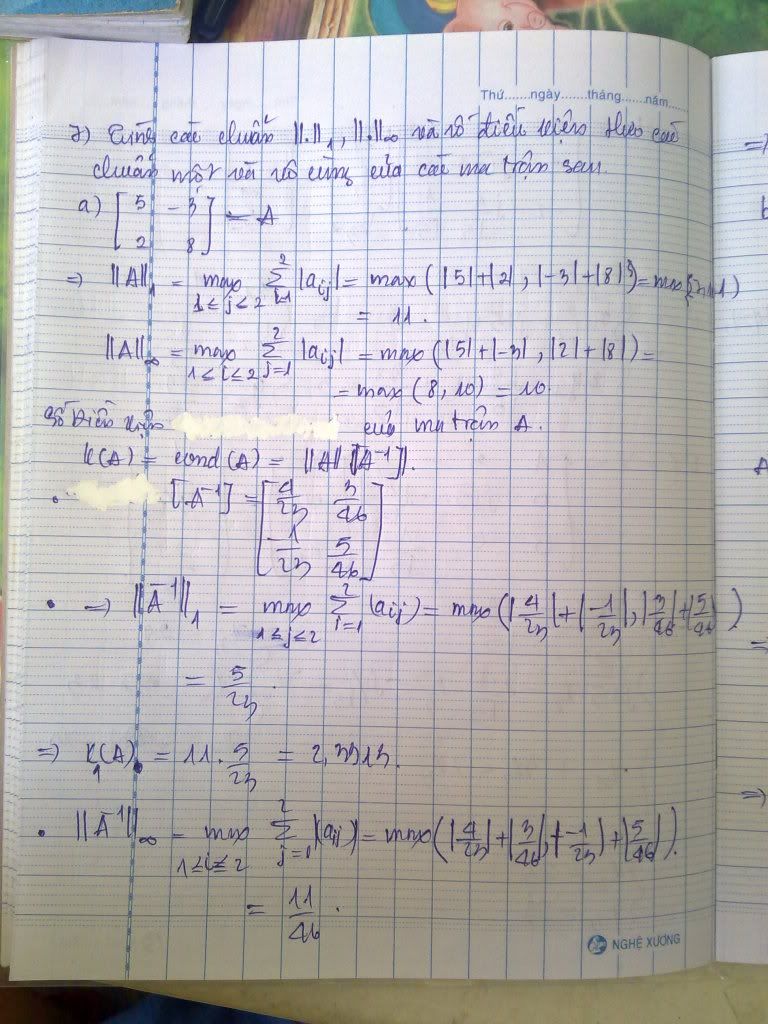 Thứ.......ngày.......tháng......năm......
7) các chuẩn ||.||₁, ||.||∞ và số điều kiện theo các
chuẩn một và vô cùng của các ma trận sau.
a) [5 -3
2 8] = A
=> ||A||₁ = max 1≤j≤2 Σ i=1 2 |aij| = max(|5|+|2|, |-3|+|8|) =
= 11.
||A||∞ = max 1≤i≤2 Σ j=1 2 |aij| = max(|5|+|-3|, |2|+|8|) =
= max(8, 10) = 10.
Số điều kiện của ma trận A.
k(A) = cond(A) = ||A|| [A⁻¹]|.
• [A⁻¹] = [4/23 3/46
-1/23 5/46]
• => ||A⁻¹||₁ = max 1≤j≤2 Σ i=1 2 |aij) = max(|4/23|+|-1/23|, |3/46|+|5/46|)
= 5/23.
=> K₁(A) = 11. 5/23 = 2,3913.
• ||A⁻¹||∞ = max 1≤i≤2 Σ j=1 2 |(aij)| = max(|4/23|+|3/46|, |-1/23)+|5/46|).
= 11/46.
NGHỆ XƯƠNG